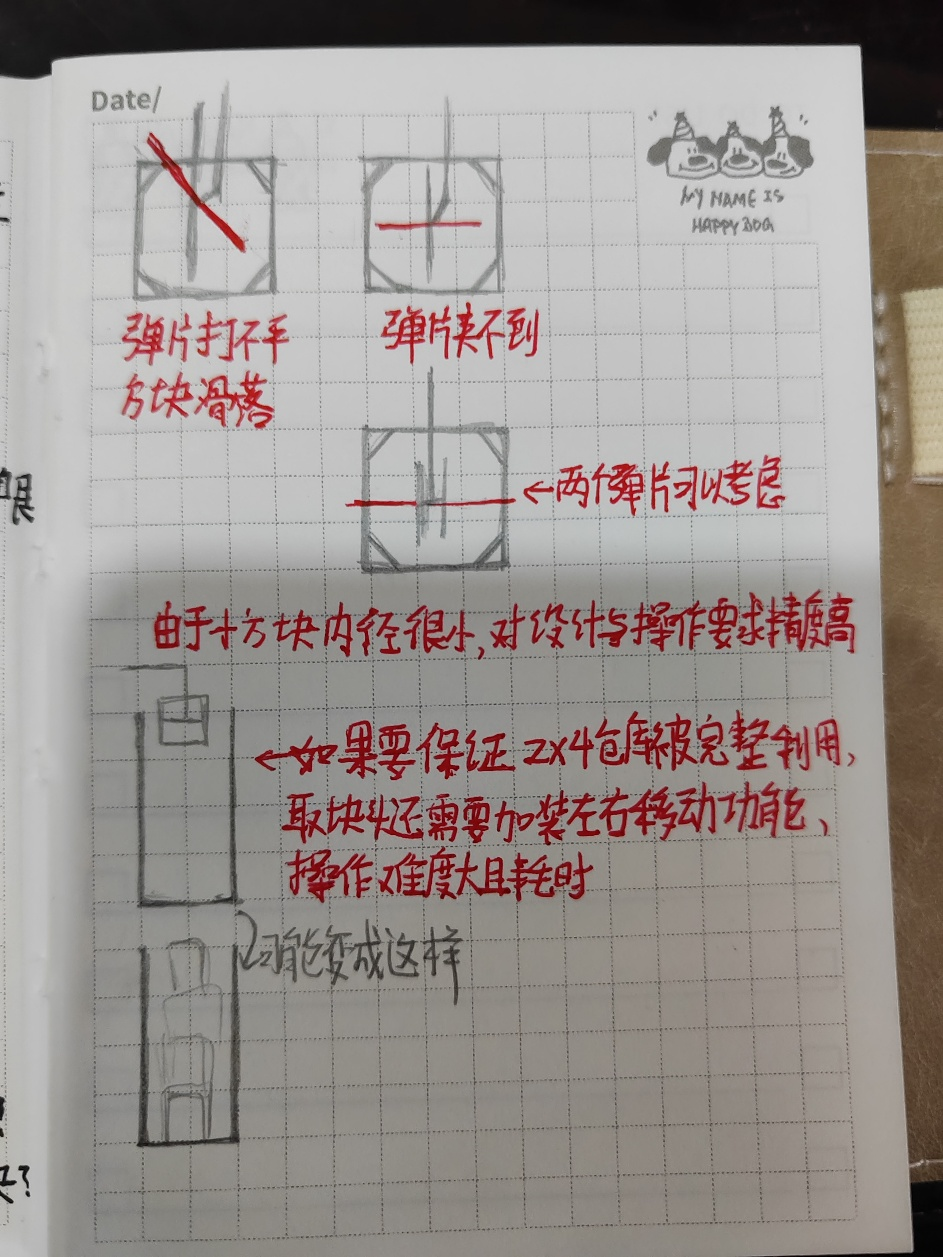 Date/
MY NAME IS
HAPPY DOG
弹片打不平
方块滑落
弹片夹不到
←两个弹片可以考虑
由于十方块内径很小,对设计与操作要求精度高
←如果要保证2X4仓库被完整利用,
取块头还需要加装左右移动功能、
操作难度大且耗时
可能变成这样